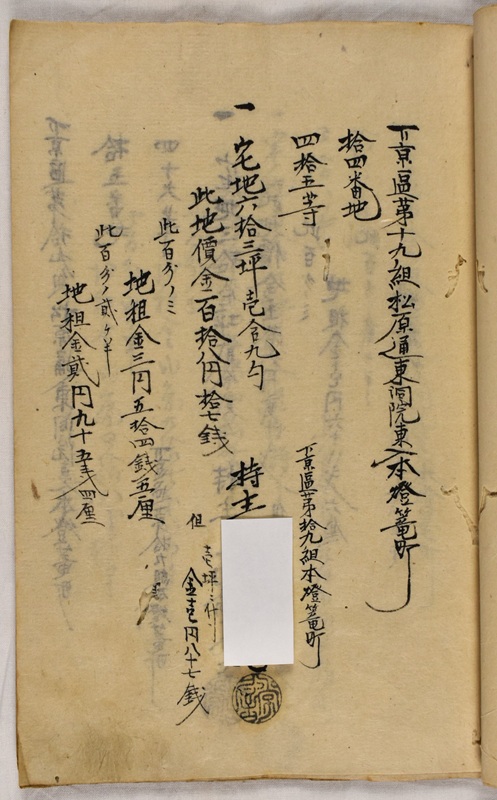 下京區苐十九組松原通東洞院東入本燈篭町
拾四番地
四拾五等
一 宅地六拾三坪壱合九勺
下京區苐拾九組本燈篭町
持主
此地價金百拾八円拾七銭
但 壱坪ニ付
金壱円八十七銭
此百分ノ三
地租金三円五拾四銭五厘
此百分ノ貳ケ半
地租金貳円九十五銭四厘